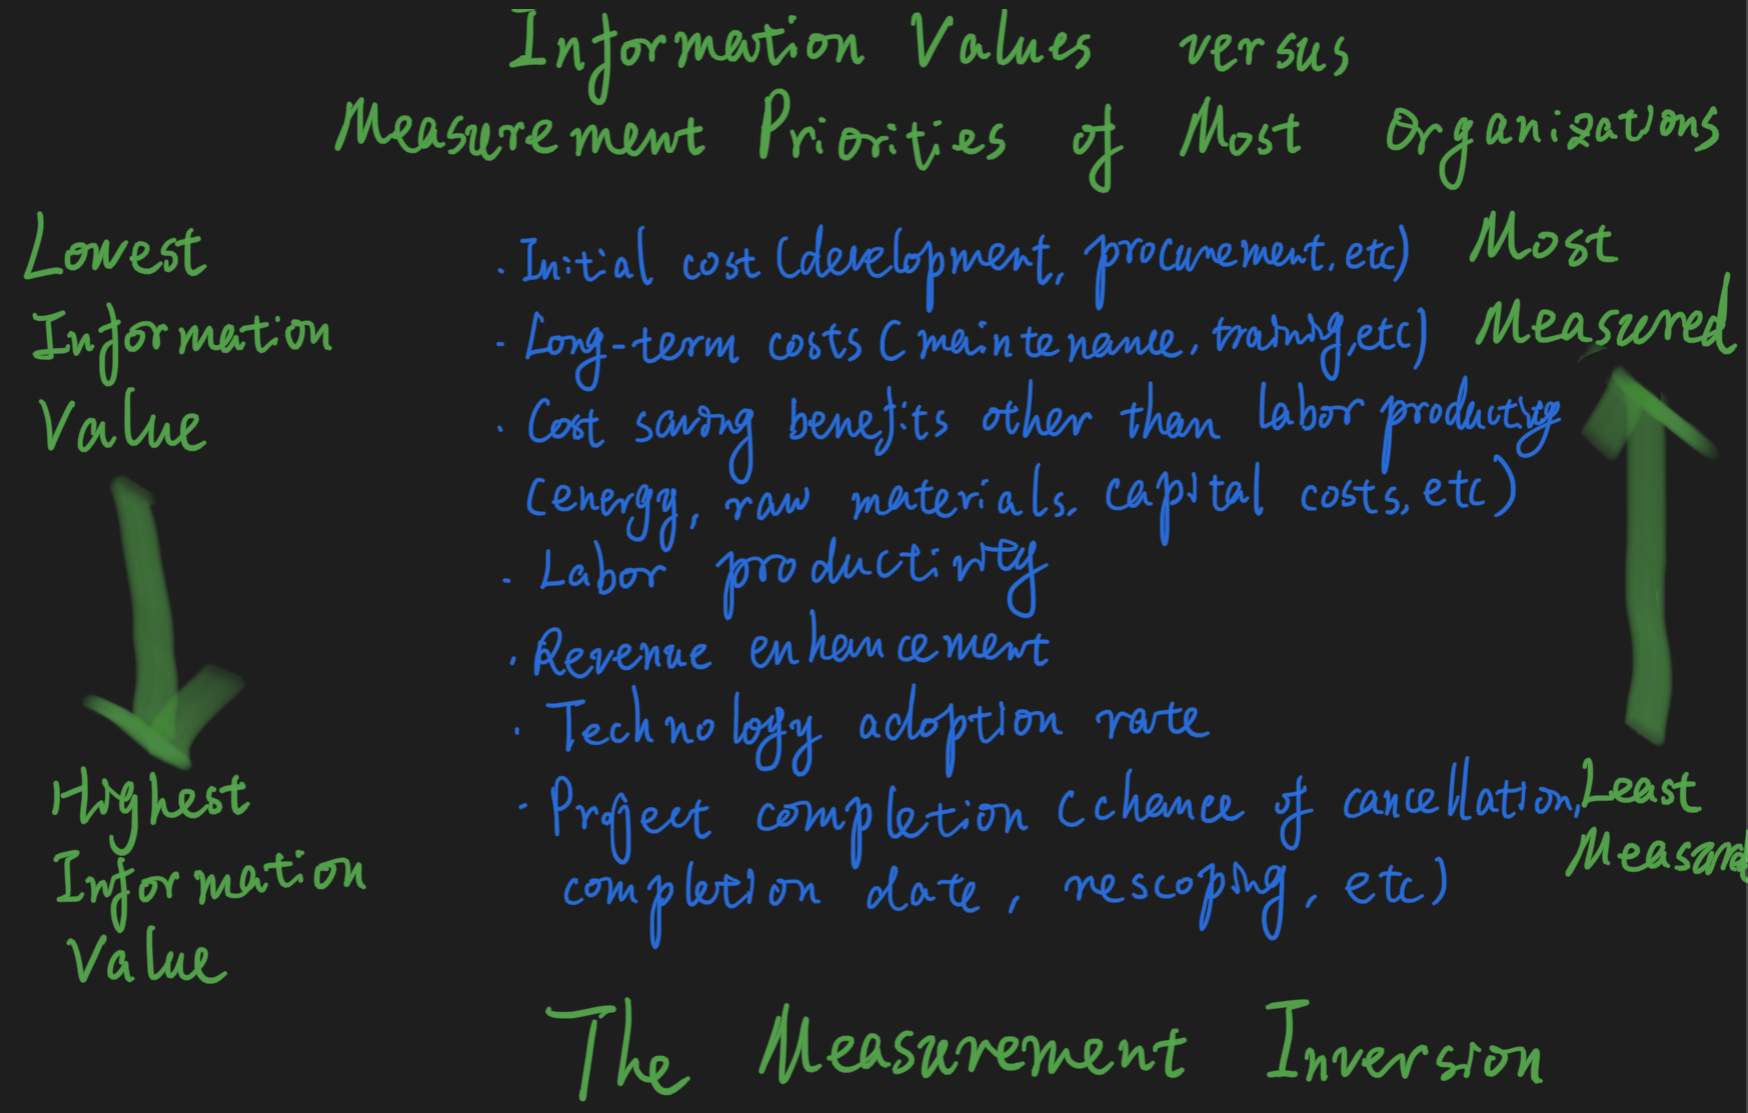 Information Values versus
Measurement Priorities of Most Organizations
Lowest
Information
Value
· Initial cost (development, procurement, etc)
· Long-term costs (maintenance, training, etc)
· Cost saving benefits other than labor productivity
(energy, raw materials, capital costs, etc)
· Labor productivity
· Revenue enhancement
· Technology adoption rate
· Project completion (chance of cancellation,
completion date, rescoping, etc)
Most
Measured
Least
Measured
Highest
Information
Value
The Measurement Inversion